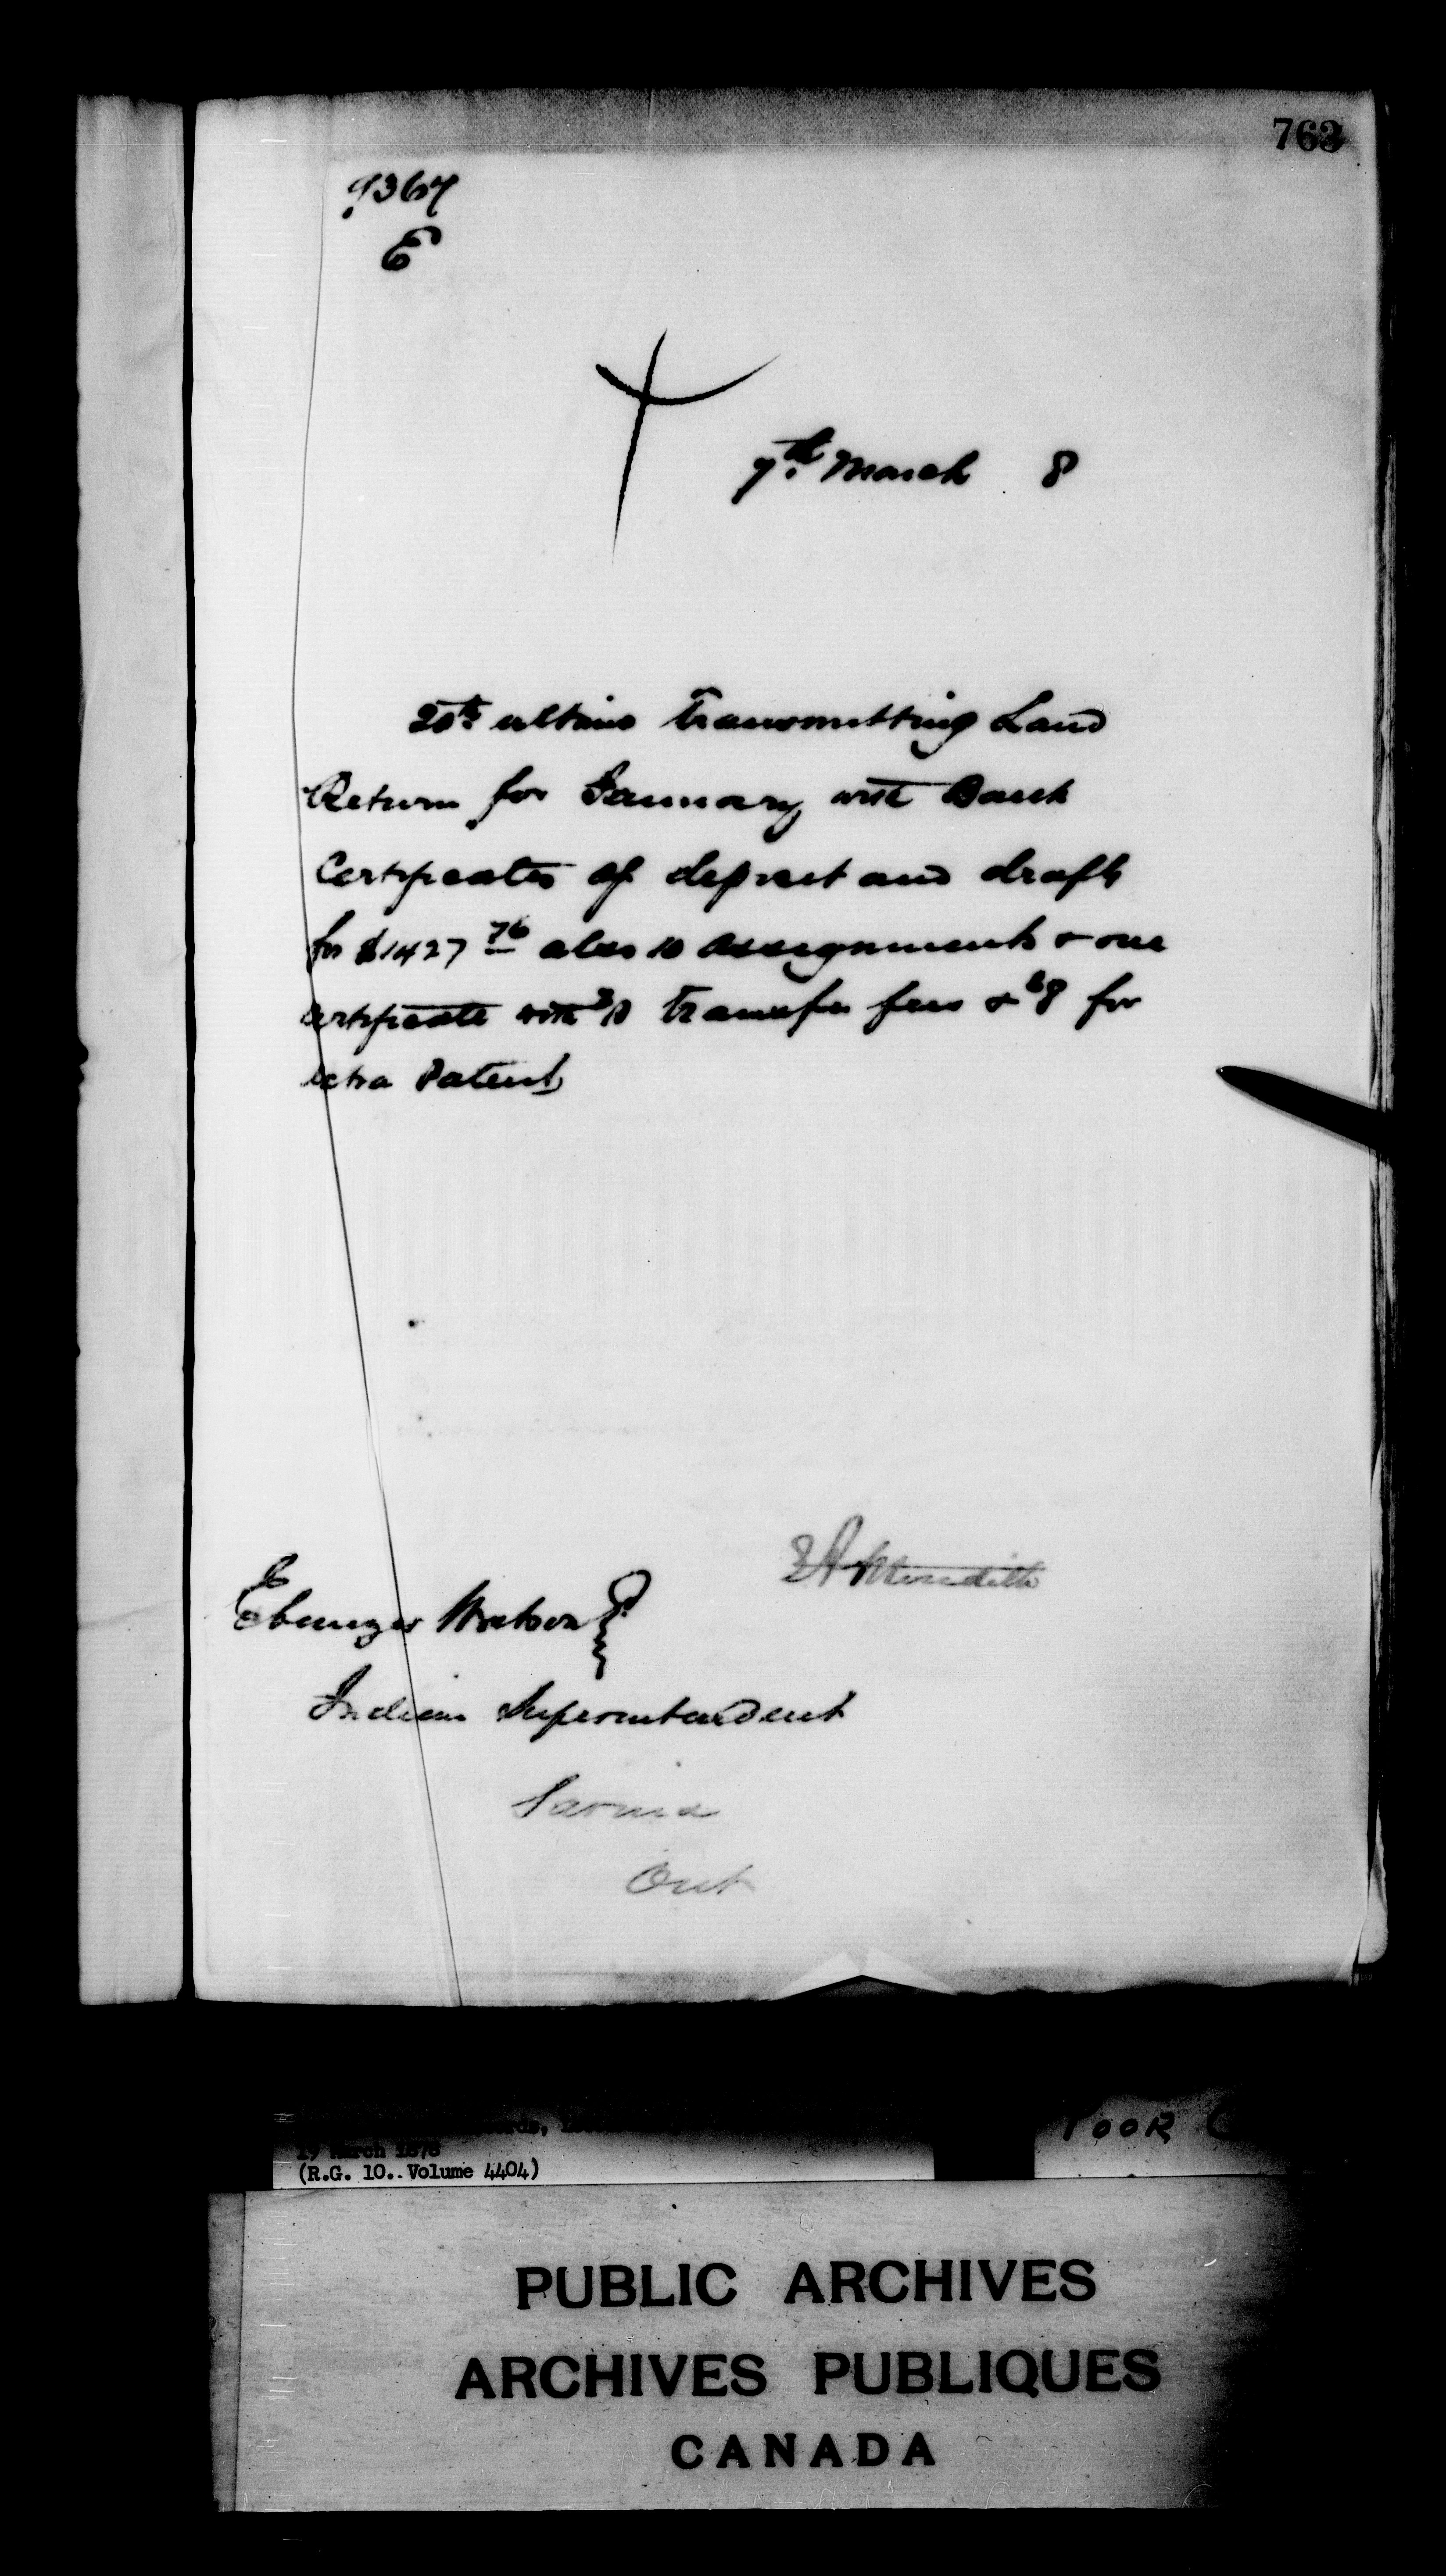 763
9367
E
7th March 8
20th ultimo transmitting Land
Return for January with Bank
Certificates of deposit and draft
for $1427 76 also 10 assignments & one
certificate with $ transfer fees & $8 for
extra Patents
EA Meredith
E
Ebenezer Watson
Indian Superintendent
Sarnia
Ont
March 1878
(R.G. 10.. Volume 4404)
POOR
PUBLIC ARCHIVES
ARCHIVES PUBLIQUES
CANADA